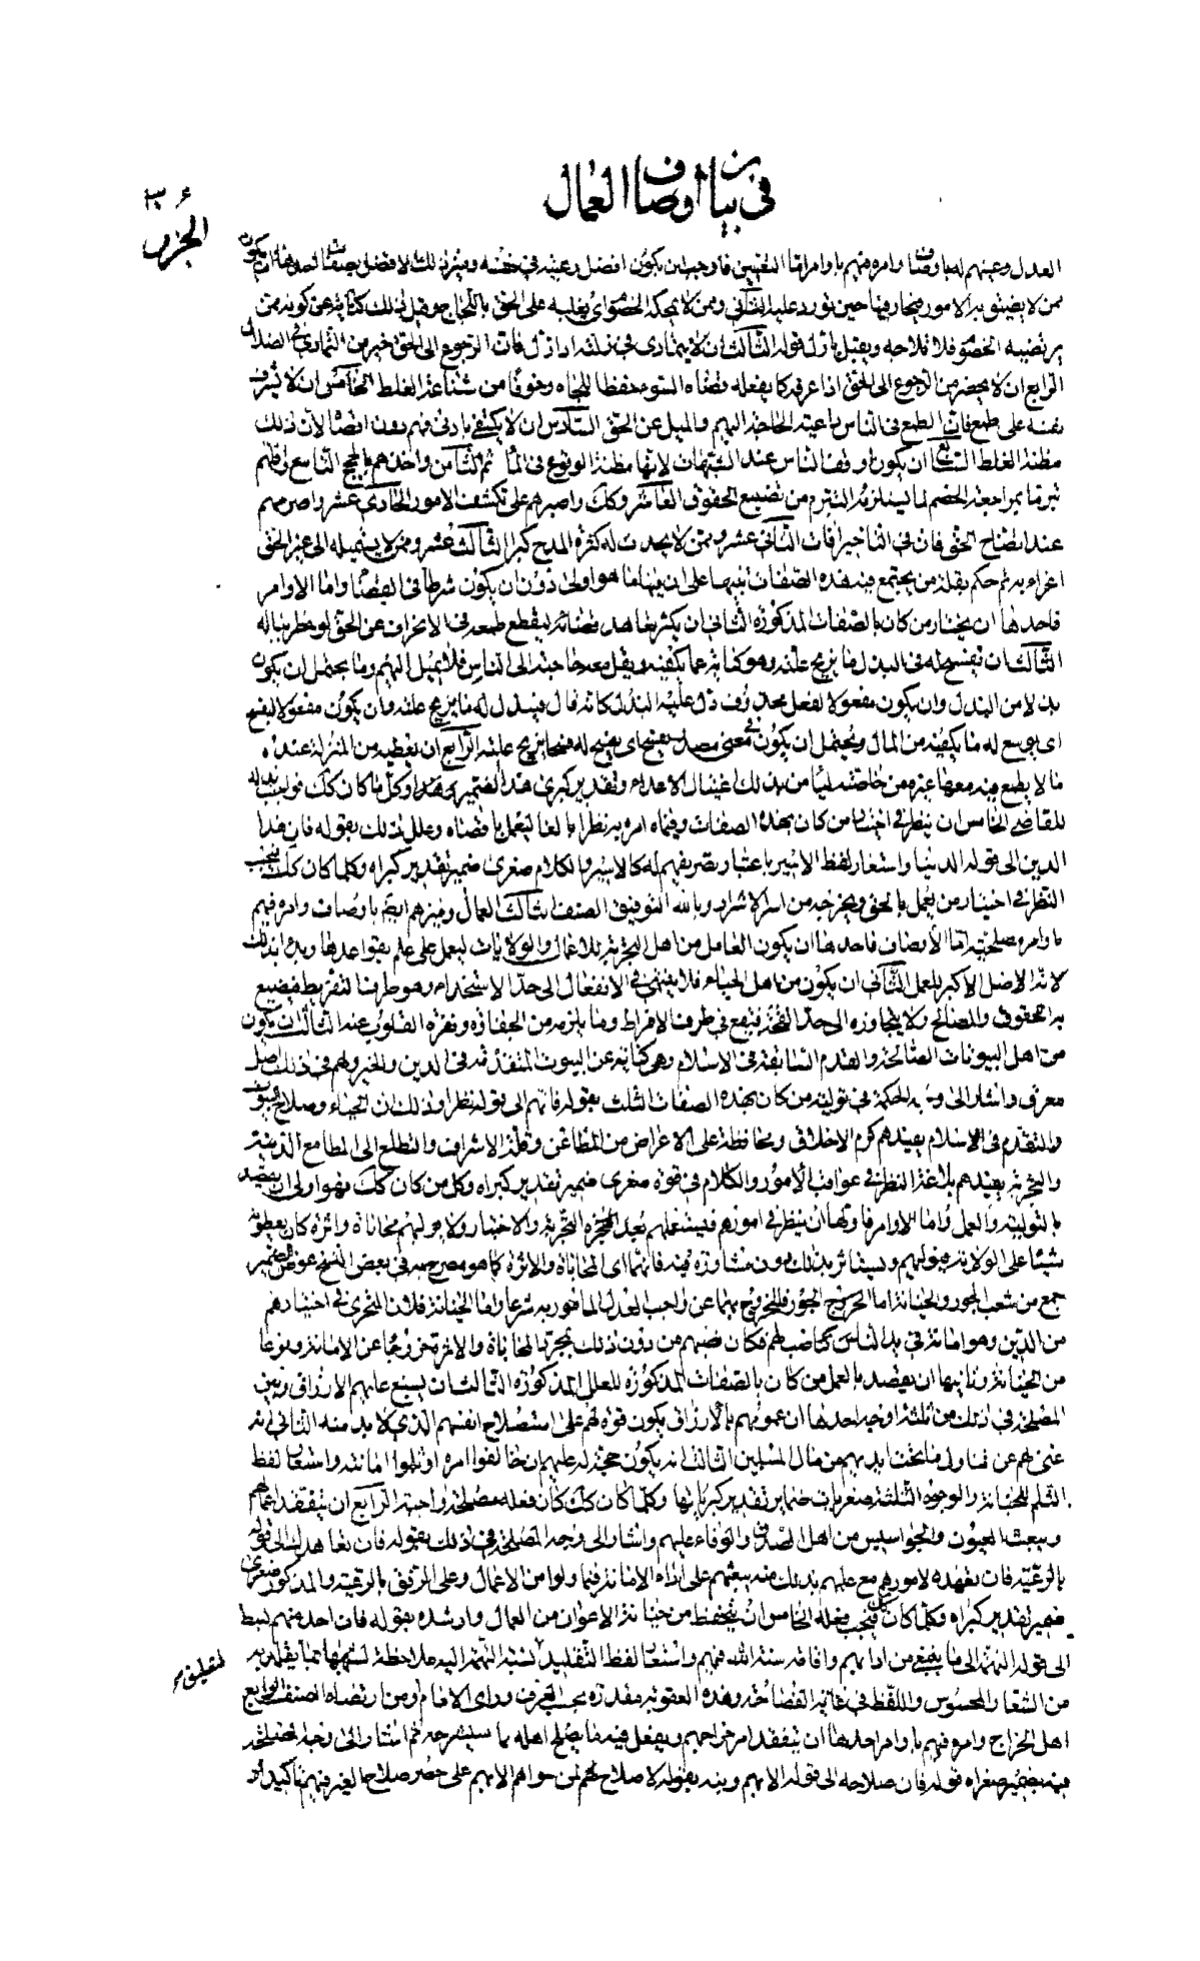 في بيان أوصاف العمال
الجزء
العدل وعينهم له باوصاف وامره فيهم باوامر اما التعيين فاوجب ان يكون افضل رعيته في نفسه وميز ذلك الافضل بصفات احدها ان يكون
ممن لا يضيق به الامور فيحار فيها حين تورد عليه الثاني وممن لا يمحكه الخصوم اي يغلبه على الحق باللجاج وقيل ذلك كناية عن كونه ممن
يرتضيه الخصوم فلا تلاجه ويقبل باول قوله الثالث ان لا يتمادى في زلته اذا زل فان الرجوع الى الحق خير من التمادي في الضلال
الرابع ان لا يحصر من الرجوع الى الحق اذا عرفه كما يفعله قضاة السوء حفظا للجاه وخوفا من شناعة الغلط الخامس ان لا تشرف
نفسه على طمع فان الطمع في الناس داعية الحاجة اليهم والميل عن الحق السادس ان لا يكتفي بادنى فهم دون اقصاه لان ذلك
مظنة الغلط السابع ان يكون اوقف الناس عند الشبهات لانها مظنة الوقوع في المآثم الثامن واخذهم بالحجج التاسع واقلهم
تبرما بمراجعة الخصم لما يستلزمه التبرم من تضييع الحقوق العاشر وكك واصبرهم على تكشف الامور الحادي عشر واصرمهم
عند اتضاح الحق فان في التاخير افات الثاني عشر وممن لا يحدث له كثرة المدح كبرا الثالث عشر وممن لا يستميله الى غير الحق
اغراء به ثم حكم بقلة من يجتمع فيه هذه الصفات تنبيها على ان فيها ما هو اولى دون ان يكون شرطا في القضاء واما الاوامر
فاحدها ان يختار من كان بالصفات المذكورة الثاني ان يكثر تعاهد قضائه ليقطع طمعه في الانحراف عن الحق لو خطر بباله
الثالث ان يفسح له في البذل ما يزيح علته وهو كناية عما يكفيه ويقل معه حاجته الى الناس فلا يميل اليهم وما يحتمل ان يكون
بدلا من البذل وان يكون مفعولا لفعل محذوف دل عليه البذل كانه قال فيبذل له ما يزيح علته وان يكون مفعولا ليفسح
اي يوسع له ما يكفيه من المال ويحتمل ان يكون في معنى مصدر يفسح اي يفسح له فسحا يزيح علته الرابع ان يعطيه من المنزلة عنده
ما لا يطمع فيه معها غيره من خاصته ليأمن بذلك اغتيال الاعداء وتقدير كبرى هذا الضمير وكل ما كان كك فواجب بذله
للقاضي الخامس ان ينظر في اختيار من كان بهذه الصفات وفيما امره به نظرا بالغا ليعمل باقصاه وعلل ذلك بقوله فان هذا
الدين الى قوله الدنيا واستعار لفظ الاسير باعتبار تصريفهم له كالاسير والكلام صغرى ضمير تقدير كبراه وكلما كان كك فيجب
النظر في اختيار من يعمل بالحق ويخرجه من اسر الاشرار وبالله التوفيق الصنف الثالث العمال وميزهم ايضا باوصاف وامره فيهم
باوامر مصلحية اما الاوصاف فاحدها ان يكون العامل من اهل التجربة للاعمال والولايات ليعمل على علم بقواعدها وبدء بذلك
لانه الاصل الاكبر للعمل الثاني ان يكون من اهل الحياء فلا ينتهي في الانفعال الى حد الاستخذاء وهو طرف التفريط فيضيع
به الحقوق والمصالح ولا يتجاوزه الى حد القحة فيقع في طرف الافراط وما يلزمه من الجفاوة ونفرة القلوب عنه الثالث ان يكون
من اهل البيوتات الصالحة والقدم السابقة في الاسلام وهي كناية عن البيوت المتقدمة في الدين والخير ولهم في ذلك اصل
معرف واشار الى وجه الحكمة في تولية من كان بهذه الصفات الثلث بقوله فانهم الى قوله نظرا وذلك ان الحياء وصلاح البيوت
والتقدم في الاسلام يفيدهم كرم الاخلاق ومحافظة على الاعراض من المطاعن وقلة الاشراف والتطلع الى المطامع الدنية
والتجربة يفيدهم بلاغة النظر في عواقب الامور والكلام في قوة صغرى ضمير تقدير كبراه وكل من كان كك فهو اولى ان يقصد
بالتولية والعمل واما الاوامر فاولها ان ينظر في امورهم فيستعملهم بعد التجربة والاختبار ولا يوليهم محاباة واثرة كان يعطونه
شيئا على الولاية فيوليهم ويستاثر بذلك دون مشاورة فيه فانهما اي المحاباة والاثرة كما هو مصرح به في بعض النسخ عوض الضمير
جمع من شعب الجور والخيانة اما الجور فللخروج بهما عن واجب العدل المامور به شرعا واما الخيانة فلان التحري في اختيارهم
من الدين وهو امانة في يد الناصب لهم فكان نصبهم من دون ذلك بمجرد المحاباة والاثرة خروجا عن الامانة ونوعا
من الخيانة وثانيها ان يقصد بالعمل من كان بالصفات المذكورة للعلل المذكورة الثالث ان يسبغ عليهم الارزاق وبين
المصلحة في ذلك من ثلثة اوجه احدها ان عمومهم بالارزاق يكون قوة لهم على استصلاح انفسهم الذي لا بد منه الثاني انه
غنى لهم عن تناول ما تحت ايديهم من مال المسلمين الثالث انه يكون حجة له عليهم ان خالفوا امره او ثلموا امانته واستعار لفظ
الثلم للخيانة والوجوه الثلثة صغريات ضماير تقدير كبرياتها وكلما كان كك كان فعله مصلحة واجبة الرابع ان يتفقد اعمالهم
ويبعث العيون والجواسيس من اهل الصدق والوفاء عليهم واشار الى وجه المصلحة في ذلك بقوله فان تعاهدك الى قوله
بالرعية فان تعهده لامورهم مع علمهم بذلك منه يبعثهم على اداء الامانة فيما ولوا من الاعمال وعلى الرفق بالرعية والمذكور صغرى
ضمير تقدير كبراه وكلما كان كك فيجب فعله الخامس ان يتحفظ من خيانة الاعوان من العمال وارشده بقوله فان احد منهم بسط
الى قوله التهمة الى ما ينبغي من ادابهم واقامة سنة الله فيهم واستعار لفظ التقليد لنسبة التهمة اليه ملاحظة لشبهها بما يقلد به
من الشعار المحسوس واللفظ في غاية الفصاحة وهذه العقوبة مقدرة بحسب العرف وراي الامام ومن ارتضاه الصنف الرابع
اهل الخراج وامره فيهم باوامر احدها ان يتفقد امر خراجهم ويفعل فيه ما يصلح اهله بما سيشرحه ثم اشار الى وجه المصلحة
فيه بضمير صغراه قوله فان صلاحه الى قوله الا بهم ونبه بقوله لا صلاح لهم لمن سواهم الا بهم على حصر صلاح الغير فيهم تاكيدا